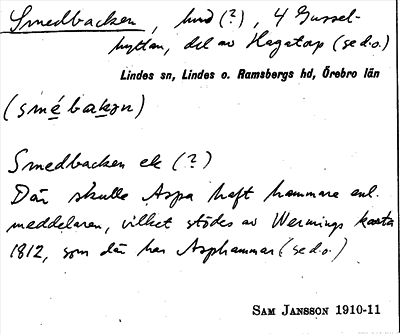 Smedbacken, lund (?), 4 Gussel-
hyttan, del av Hagatorp (se d.o.)
Lindes sn, Lindes o. Ramsbergs hd, Örebro län
(smébakən)
Smedbacken ek (?)
Där skulle Aspa haft hammare enl.
meddelaren, vilket stödes av Wermings karta
1812, som där har Asphammar (se d.o.)
SAM JANSSON 1910-11